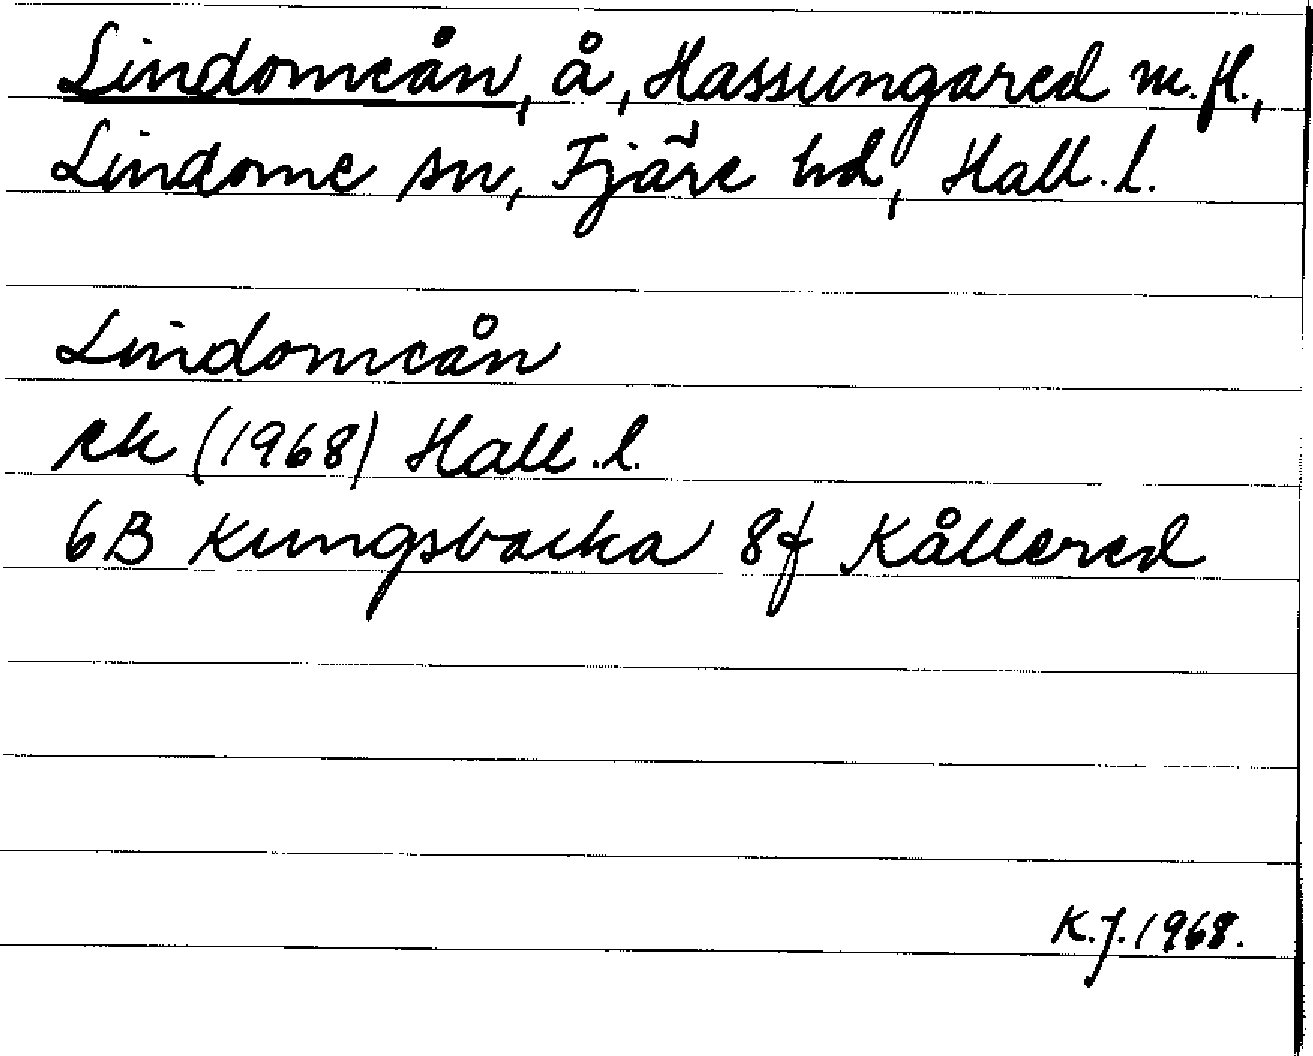 Lindomeån, å, Hassungared m.fl.,
Lindome sn, Fjäre hd, Hall. l.
Lindomeån
ek (1968) Hall. l.
6B Kungsbacka 8f Kållered
K.J. 1968.